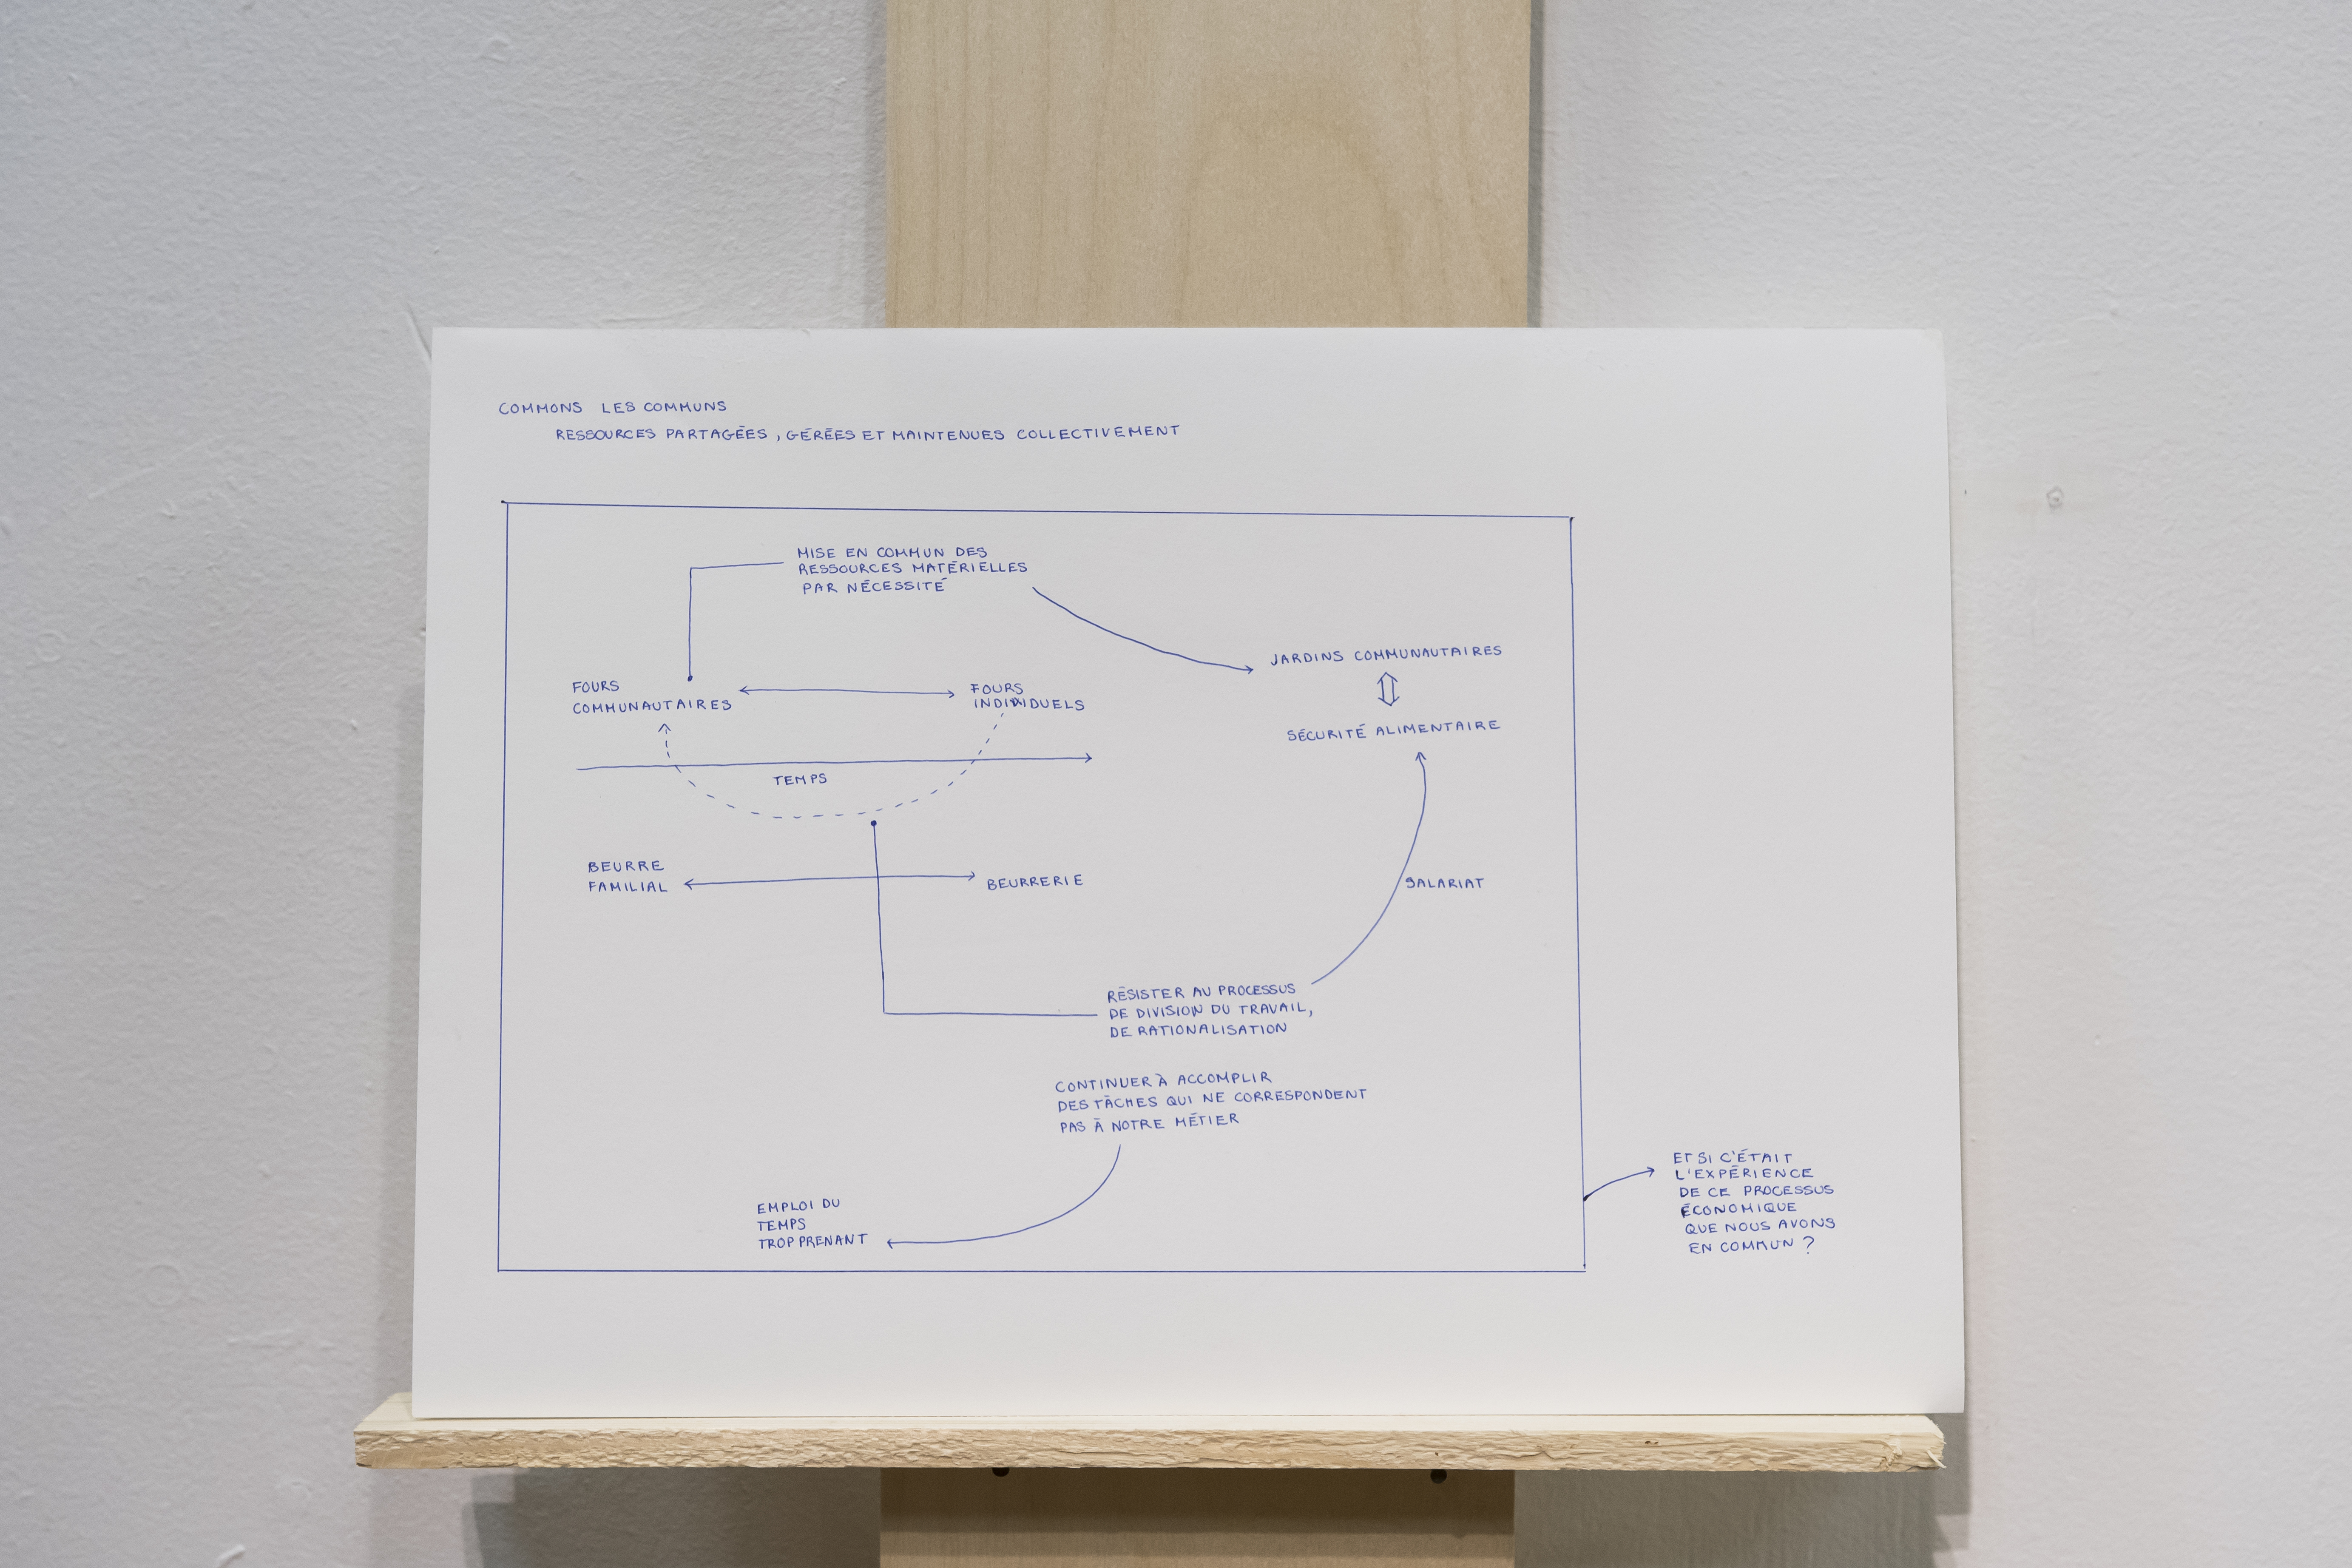 COMMONS LES COMMUNS
RESSOURCES PARTAGÉES, GÉRÉES ET MAINTENUES COLLECTIVEMENT
MISE EN COMMUN DES
RESSOURCES MATÉRIELLES
PAR NÉCESSITÉ
JARDINS COMMUNAUTAIRES
SÉCURITÉ ALIMENTAIRE
FOURS
COMMUNAUTAIRES
FOURS
INDIVIDUELS
TEMPS
BEURRE
FAMILIAL
BEURRERIE
SALARIAT
RÉSISTER AU PROCESSUS
DE DIVISION DU TRAVAIL,
DE RATIONALISATION
CONTINUER À ACCOMPLIR
DES TÂCHES QUI NE CORRESPONDENT
PAS À NOTRE MÉTIER
EMPLOI DU
TEMPS
TROP PRENANT
ET SI C'ÉTAIT
L'EXPÉRIENCE
DE CE PROCESSUS
ÉCONOMIQUE
QUE NOUS AVONS
EN COMMUN ?